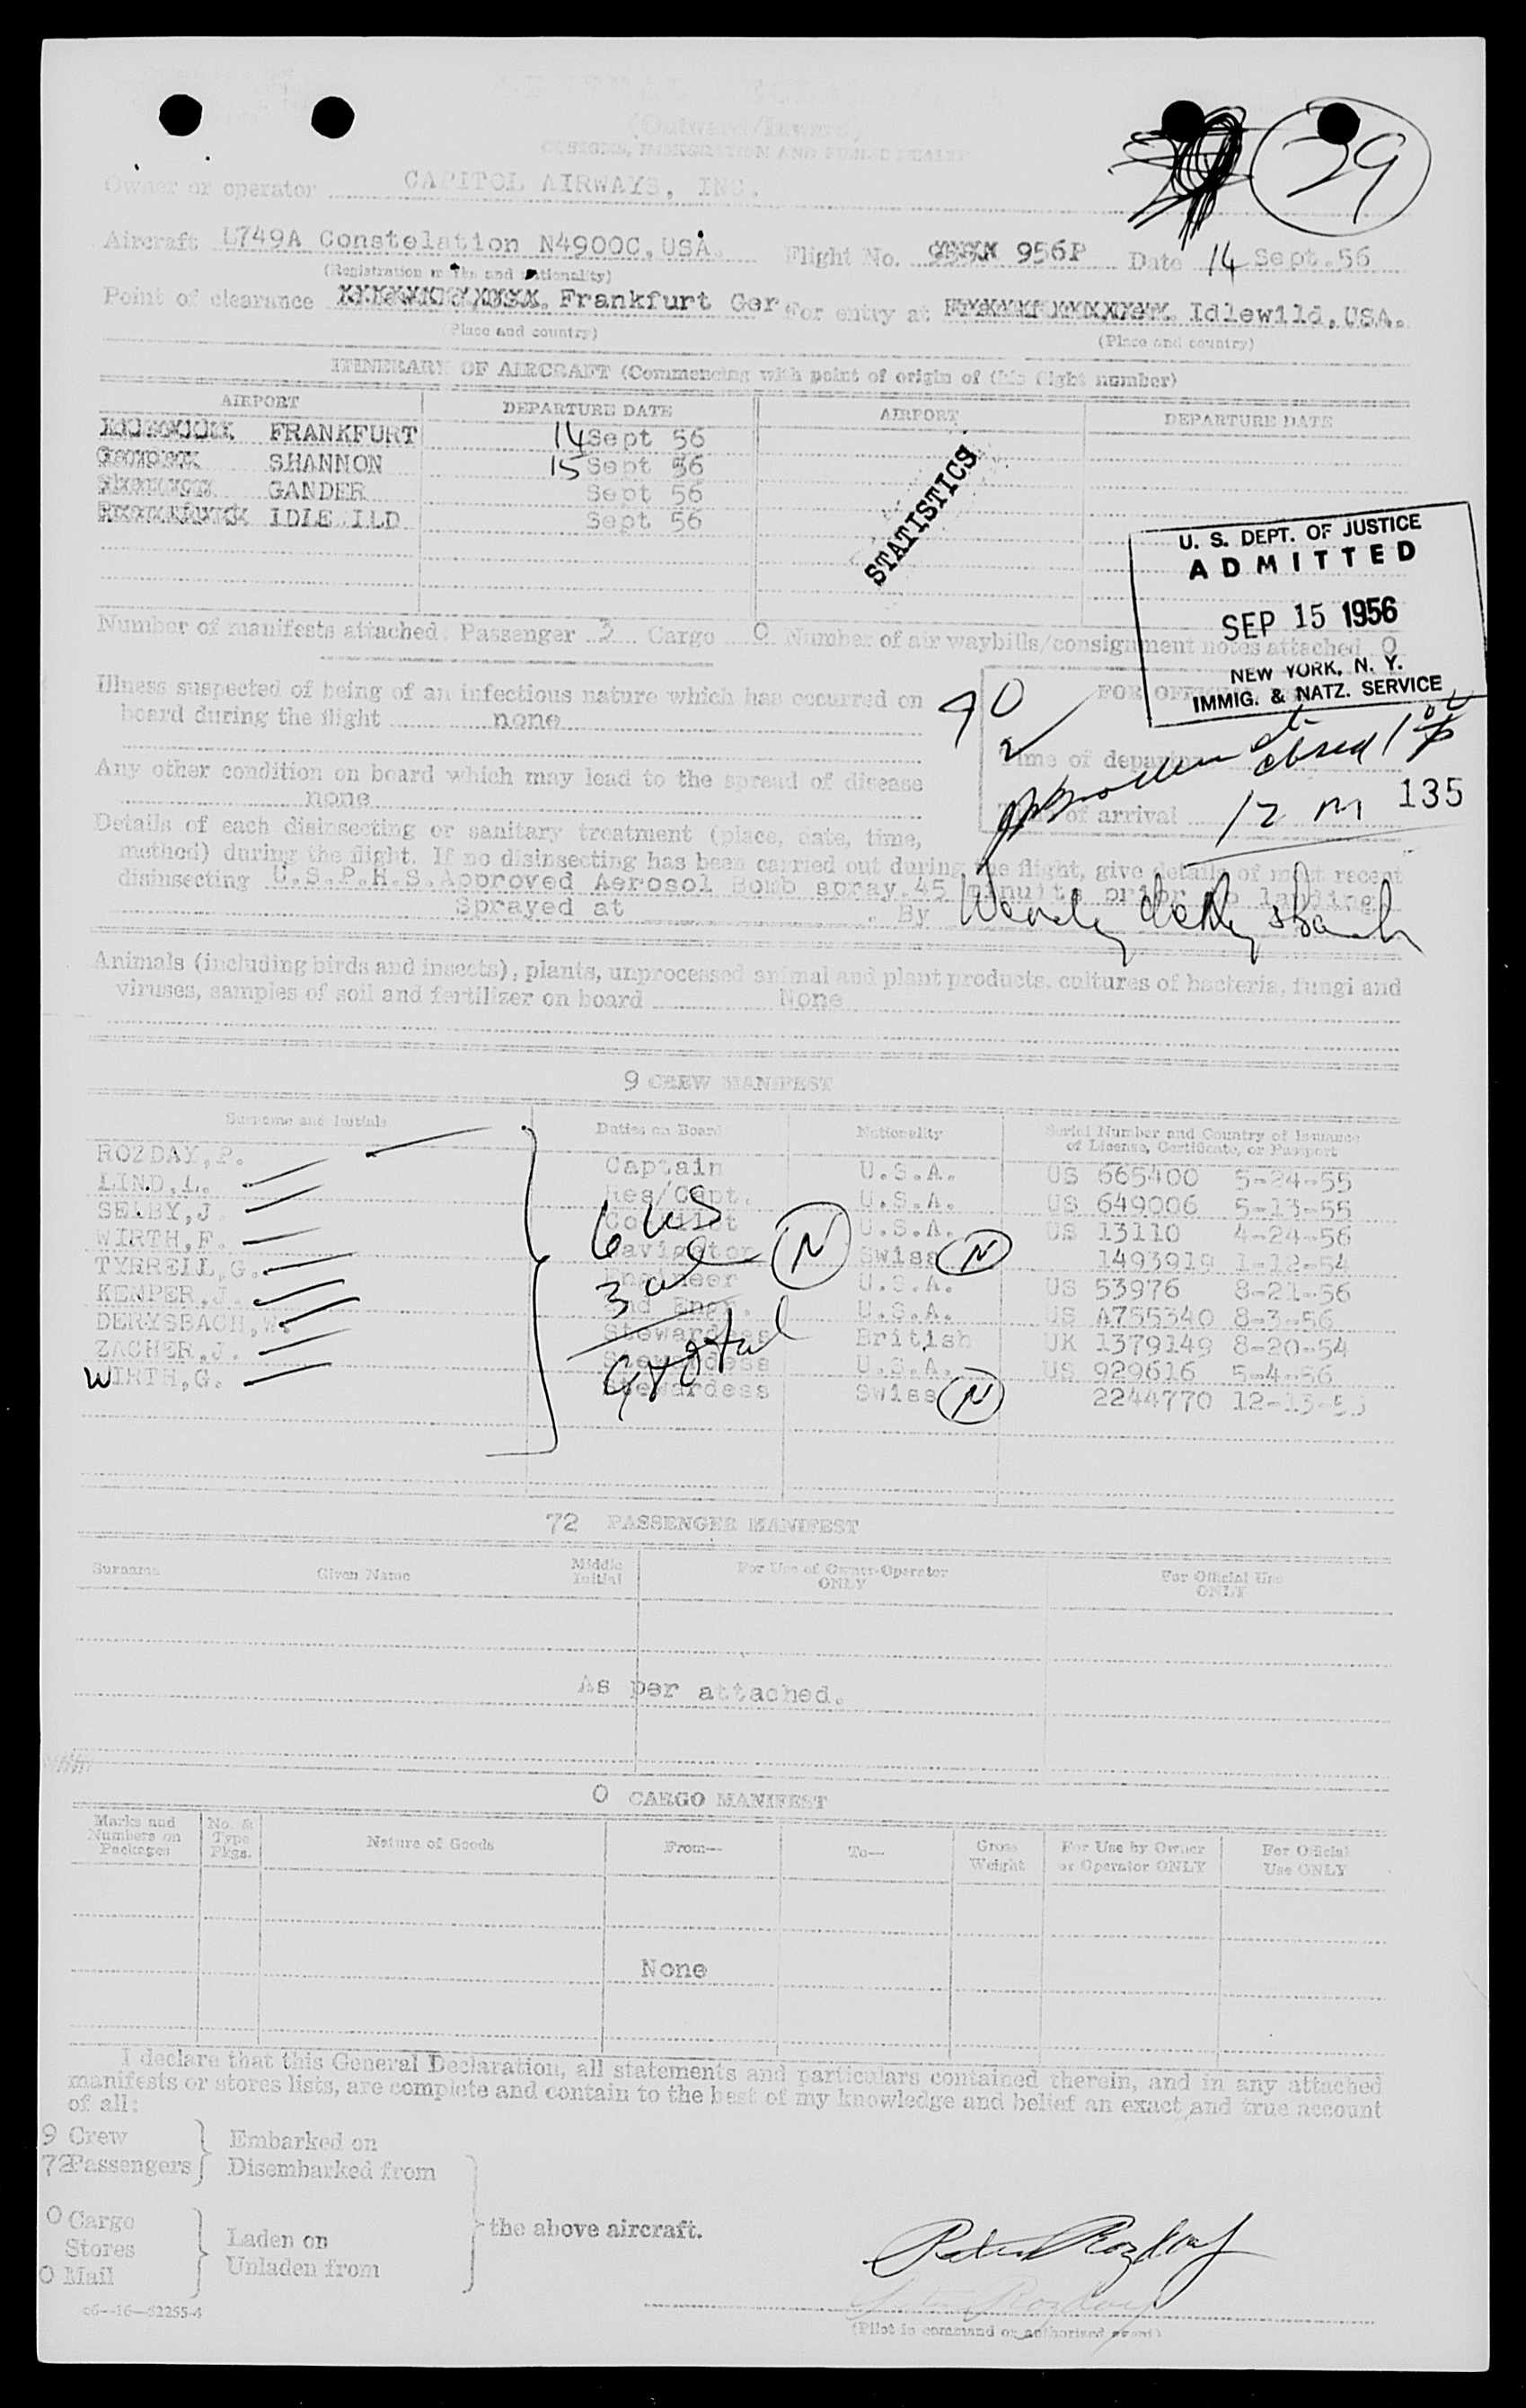 (Outward/Inward)
CUSTOMS, IMMIGRATION AND PUBLIC HEALTH
29
Owner or operator CAPITOL AIRWAYS, INC.
Aircraft L749A Constelation N4900C, USA. Flight No. 956P Date 14 Sept. 56
(Registration marks and nationality)
Point of clearance Frankfurt Ger For entry at Idlewild, USA.
(Place and country) (Place and country)
ITINERARY OF AIRCRAFT (Commencing with point of origin of this flight number)
AIRPORT DEPARTURE DATE AIRPORT DEPARTURE DATE
FRANKFURT 14 Sept 56
SHANNON 15 Sept 56
GANDER Sept 56
IDLE ILD Sept 56
STATISTICS
U. S. DEPT. OF JUSTICE
ADMITTED
SEP 15 1956
NEW YORK, N. Y.
IMMIG. & NATZ. SERVICE
Number of manifests attached: Passenger 3 Cargo 0 Number of air waybills/consignment notes attached 0
Illness suspected of being of an infectious nature which has occurred on
board during the flight none
FOR OFFICIAL
Time of departure
Any other condition on board which may lead to the spread of disease
none
of arrival 12 m 135
Details of each disinsecting or sanitary treatment (place, date, time,
method) during the flight. If no disinsecting has been carried out during the flight, give details of most recent
disinsecting U.S.P.H.S. Approved Aerosol Bomb spray. 45 minuits prior to landing
Sprayed at . By
Animals (including birds and insects), plants, unprocessed animal and plant products, cultures of bacteria, fungi and
viruses, samples of soil and fertilizer on board None
9 CREW MANIFEST
Surname and Initials Duties on Board Nationality Serial Number and Country of Issuance
of License, Certificate, or Passport
ROZDAY, P. Captain U.S.A. US 665400 5-24-55
LIND, L. Res/Capt. U.S.A. US 649006 5-13-55
SELBY, J. Co Pilot U.S.A. US 13110 4-24-56
WIRTH, F. Navigator Swiss N 1493919 1-12-54
TYRRELL, G. Engineer U.S.A. US 53976 8-21-56
KENPER, J. 2nd Engr. U.S.A. US A755340 8-3-56
DERYSBACH, W. Stewardess British UK 1379149 8-20-54
ZACHER, J. Stewardess U.S.A. US 929616 5-4-56
WIRTH, G. Stewardess Swiss N 2244770 12-13-53
6 US
3 al
N
9 total
72 PASSENGER MANIFEST
Surname Given Name Middle Initial For Use of Owner-Operator ONLY For Official Use ONLY
As per attached.
0 CARGO MANIFEST
Marks and Numbers on Packages No. & Type Pkgs. Nature of Goods From— To— Gross Weight For Use by Owner or Operator ONLY For Official Use ONLY
None
I declare that this General Declaration, all statements and particulars contained therein, and in any attached
manifests or stores lists, are complete and contain to the best of my knowledge and belief an exact and true account
of all:
9 Crew Embarked on
72 Passengers Disembarked from
the above aircraft.
0 Cargo
Stores Laden on
0 Mail Unladen from
Peter Rozday
(Pilot in command or authorized agent)